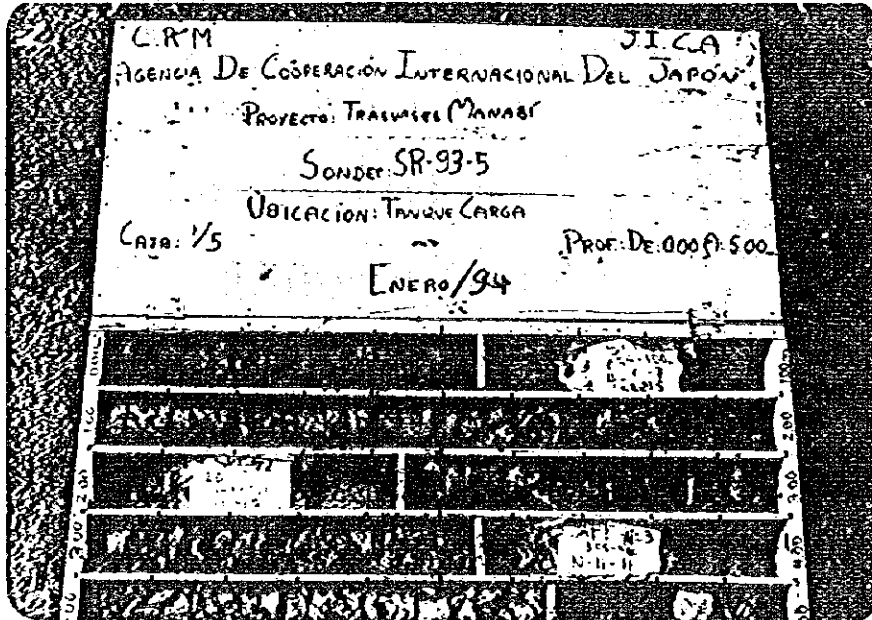 C.R.M J.I.C.A
AGENCIA DE COOPERACIÓN INTERNACIONAL DEL JAPÓN
PROYECTO: TRASVASES MANABÍ
SONDEO: SR-93-5
UBICACION: TANQUE CARGA
CAJA: 1/5 PROF: DE: 0.00 A: 5.00
ENERO/94
1.00 2.00
2.00 3.00
3.00 4.00
N-11-11